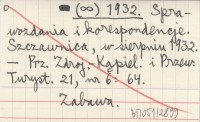 (∞) 1932. Spra-
wozdania i korespondencje.
Szczawnica, w sierpniu 1932.
— Prz. Zdroj.-Kąpiel. i Przew.
Turyst. 21, nr 6: 64.
Zabawa.